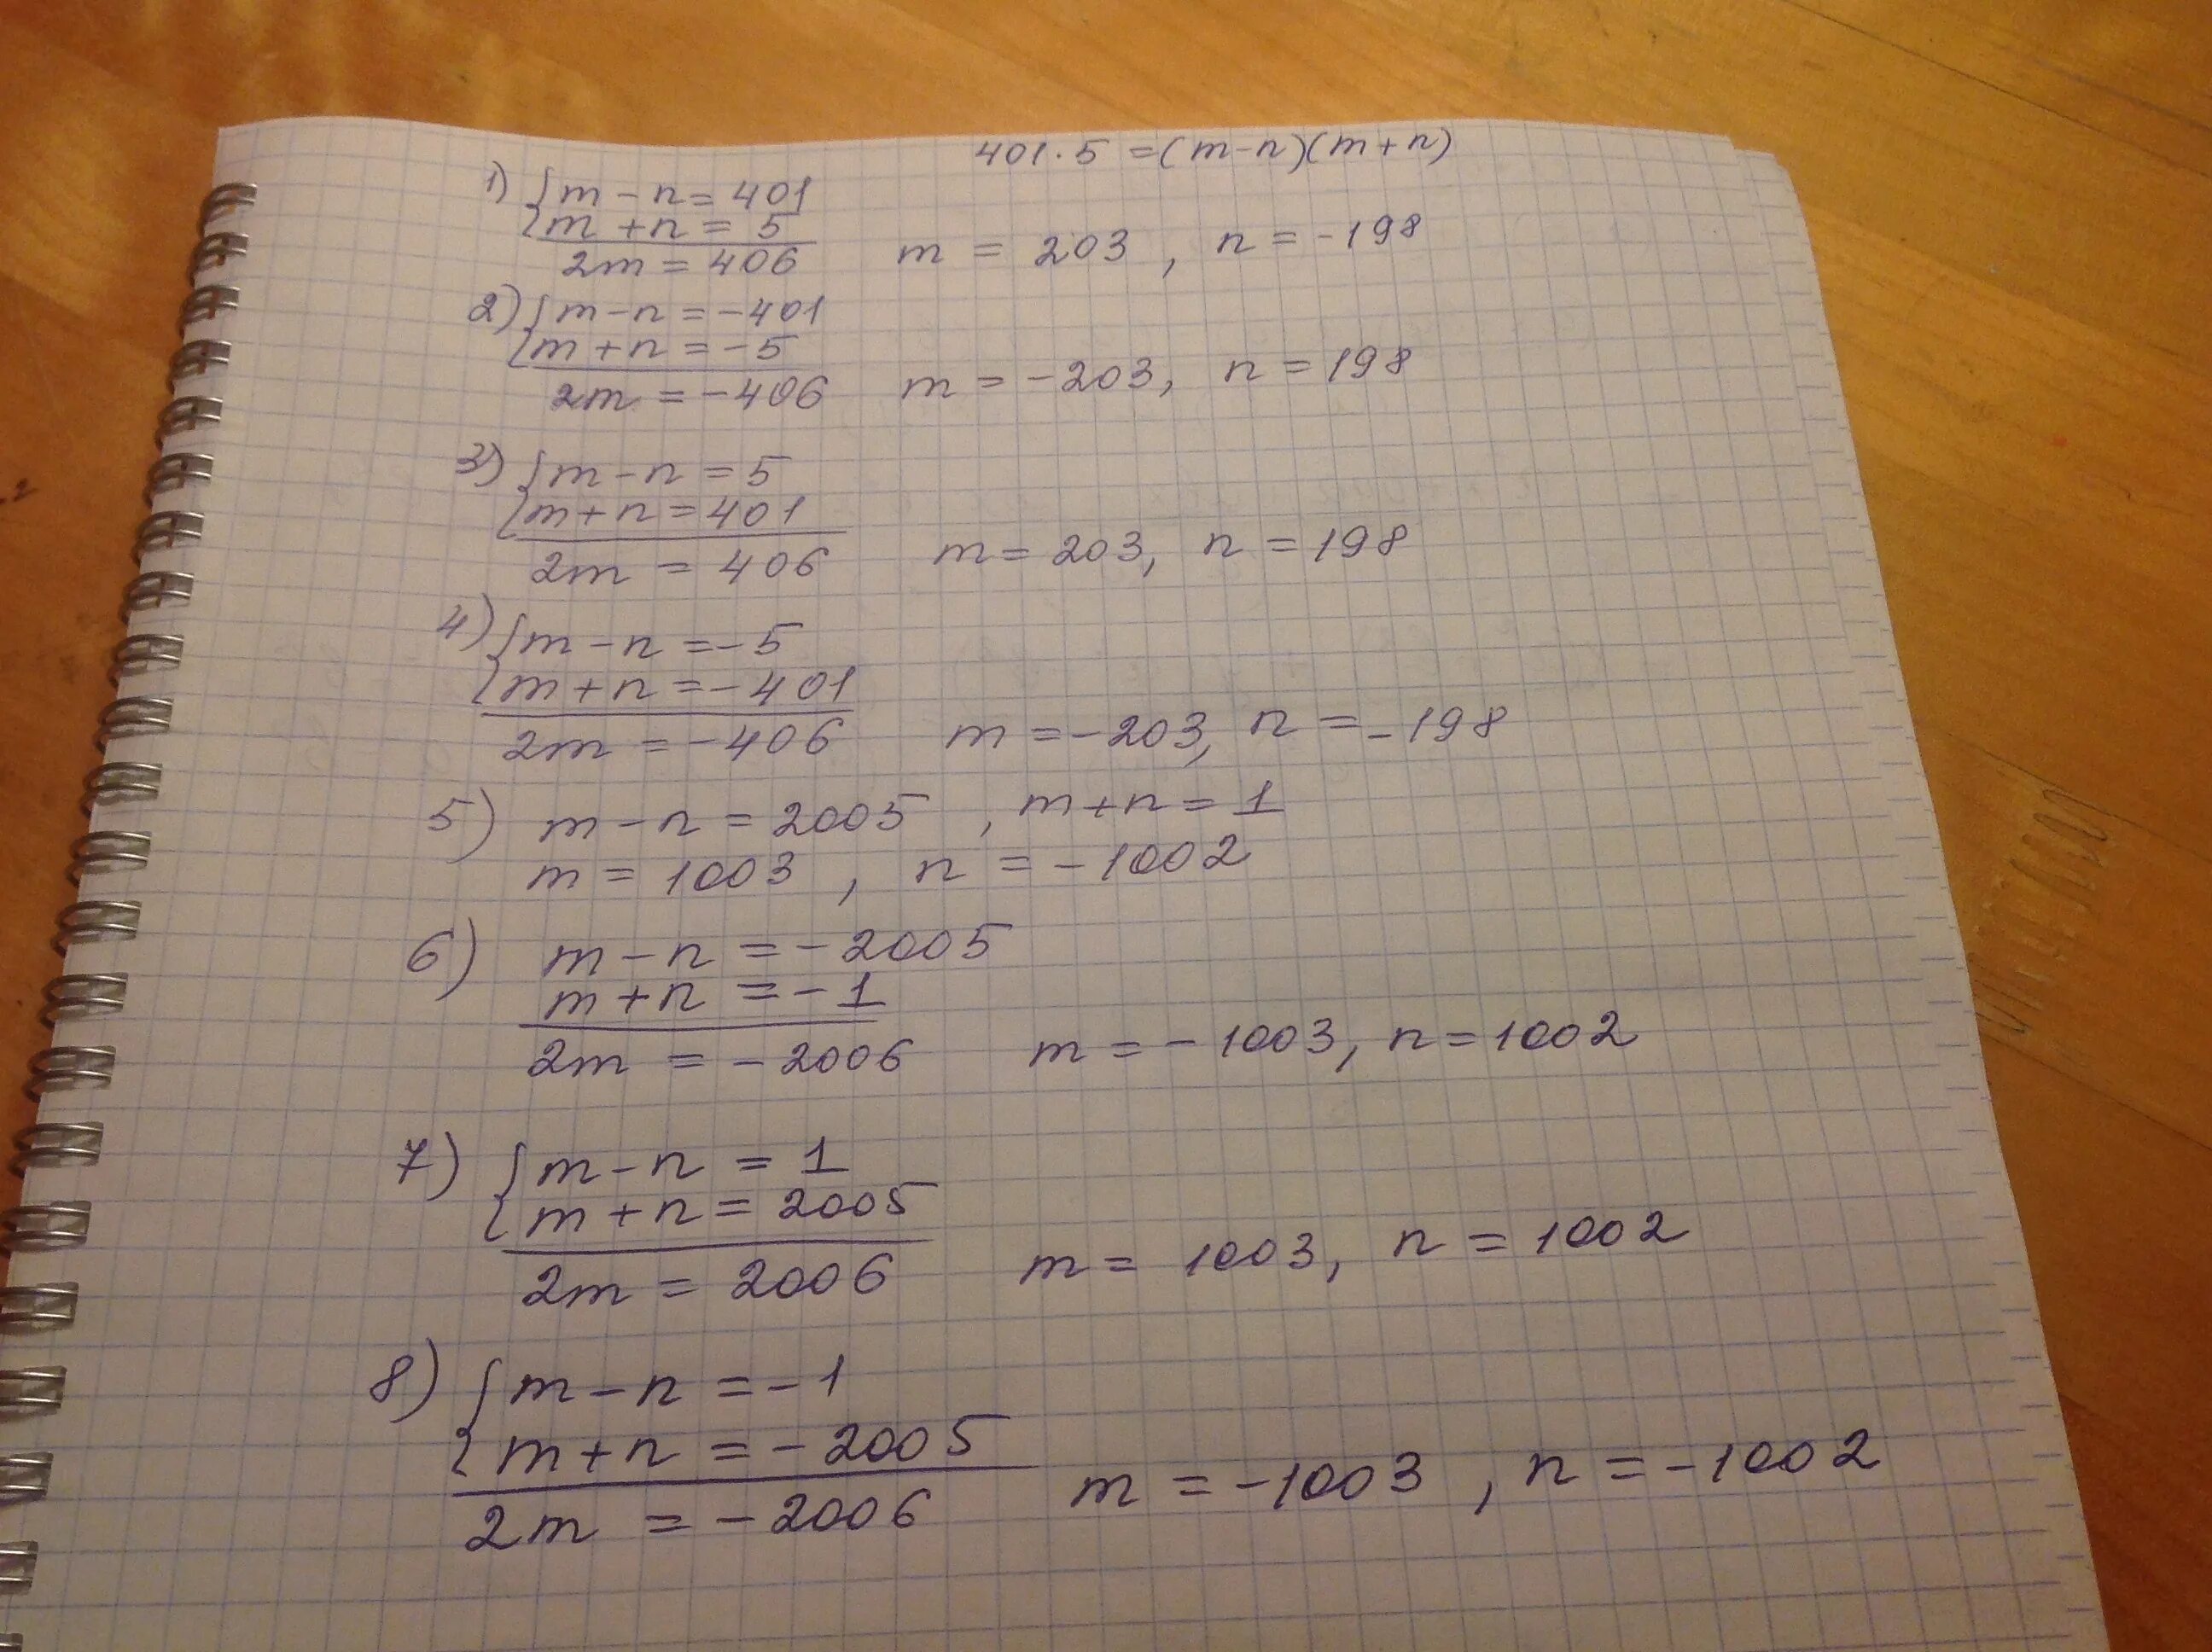 401·5 = (m-n)(m+n)
1) { m - n = 401
m + n = 5
2m = 406 m = 203, n = -198
2) { m - n = -401
m + n = -5
2m = -406 m = -203, n = 198
3) { m - n = 5
m + n = 401
2m = 406 m = 203, n = 198
4) { m - n = -5
m + n = -401
2m = -406 m = -203, n = -198
5) m - n = 2005, m + n = 1
m = 1003, n = -1002
6) m - n = -2005
m + n = -1
2m = -2006 m = -1003, n = 1002
7) { m - n = 1
m + n = 2005
2m = 2006 m = 1003, n = 1002
8) { m - n = -1
m + n = -2005
2m = -2006 m = -1003, n = -1002